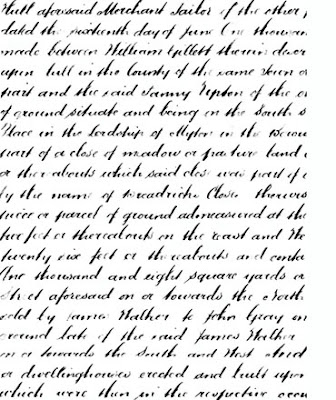 Hull aforesaid Merchant Tailor of the other p
dated the sixteenth day of June One thousan
made between William Gillett therein descr
upon Hull in the County of the same Town o
part and the said Fanny Upton of the o
of ground situate and being on the South s
Place in the Lordship of Myton in the Borou
part of a close of meadow or pasture land c
or thereabouts which said close was part of c
by the name of Breadricke Closes
piece or parcel of ground admeasured at the
two feet or thereabouts on the East and We
twenty six feet or thereabouts and conta
One thousand and eight square yards or
Street aforesaid on or towards the North
sold by James Walker to John Gray on
ground late of the said James Walker
on or towards the South and West And
or dwellinghouses erected and built upon
which were then in the respective occu